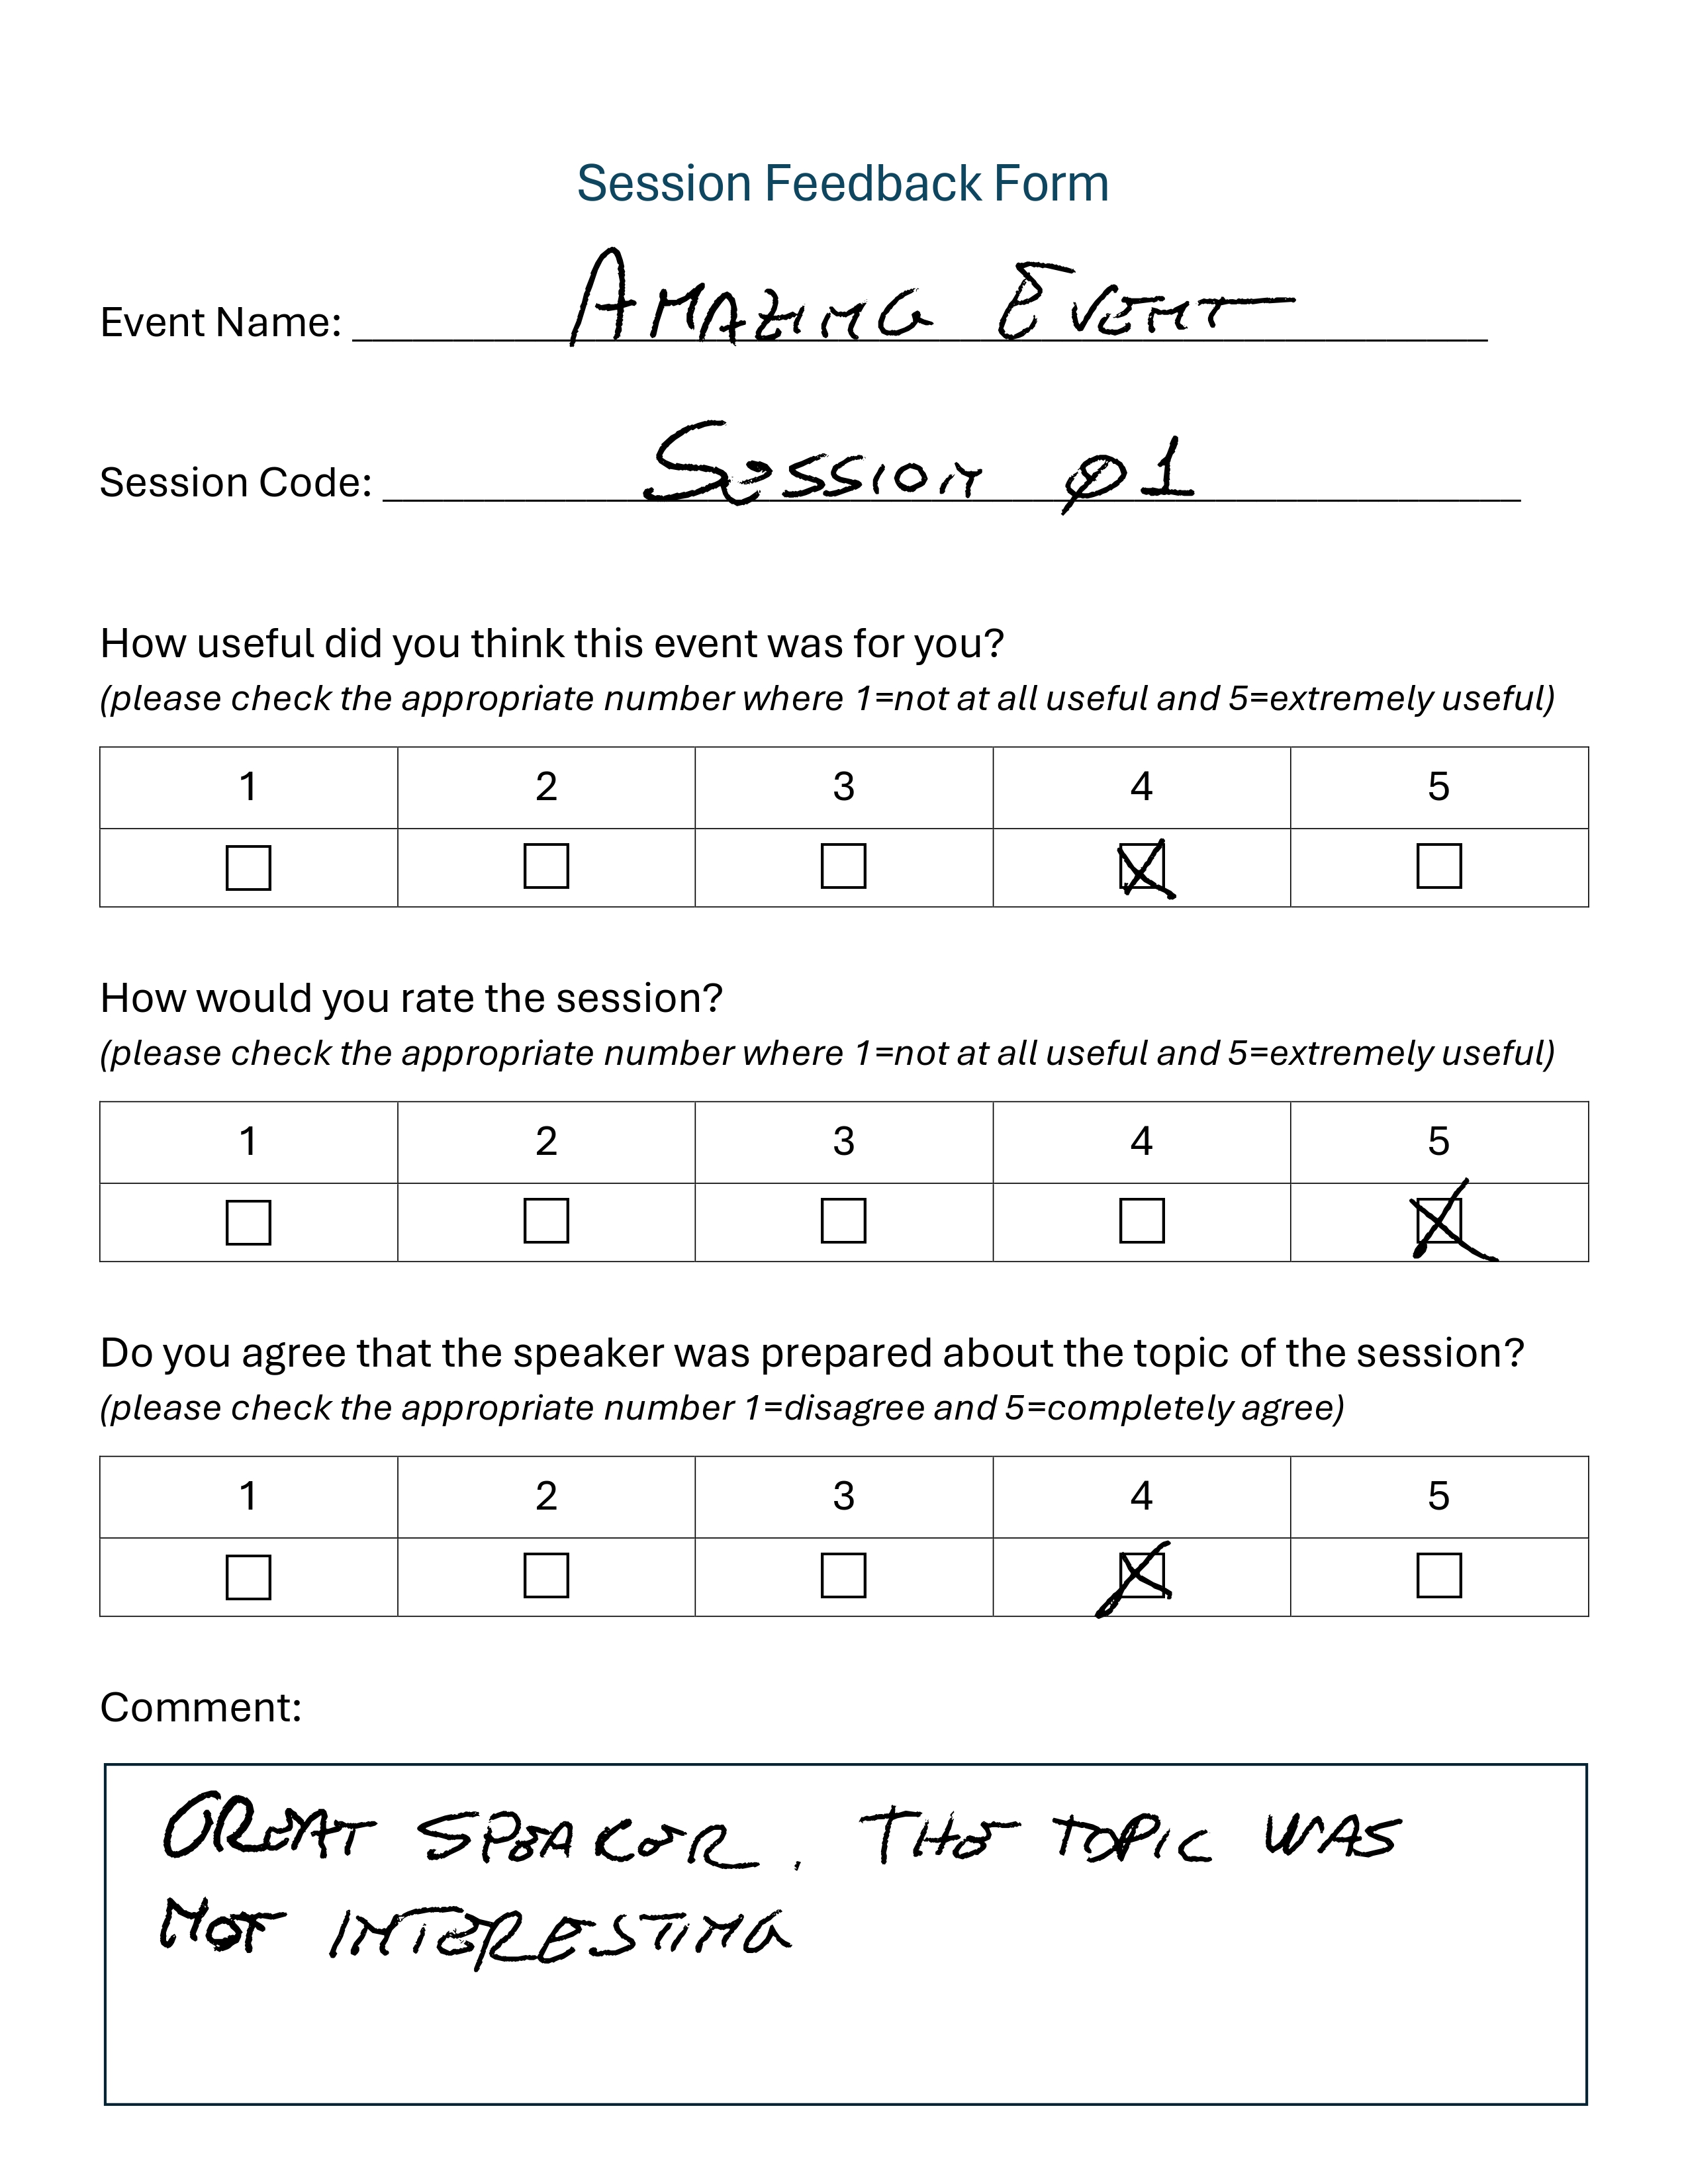 Session Feedback Form
Event Name: AMAZING EVENT
Session Code: SESSION 01
How useful did you think this event was for you?
(please check the appropriate number where 1=not at all useful and 5=extremely useful)
1 2 3 4 5
How would you rate the session?
(please check the appropriate number where 1=not at all useful and 5=extremely useful)
1 2 3 4 5
Do you agree that the speaker was prepared about the topic of the session?
(please check the appropriate number 1=disagree and 5=completely agree)
1 2 3 4 5
Comment:
GREAT SPEAKER. THE TOPIC WAS
NOT INTERESTING